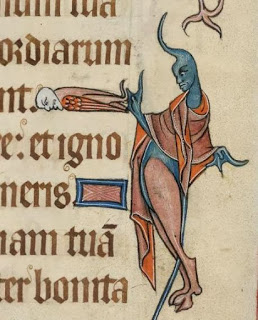 num tua
ordiarum
nt.
re: et igno
neris.
nam tuā
ter bonita